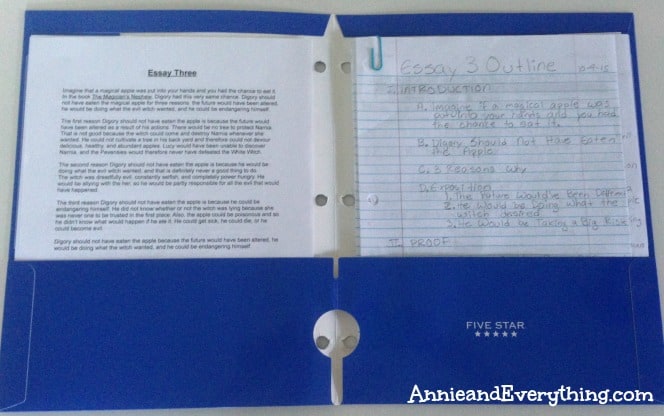 Essay Three
Imagine that a magical apple was put into your hands and you had the chance to eat it.
In the book The Magician's Nephew, Digory had this very same chance. Digory should
not have eaten the magical apple for three reasons: the future would have been altered,
he would be doing what the evil witch wanted, and he could be endangering himself.
The first reason Digory should not have eaten the apple is because the future would
have been altered as a result of his actions. There would be no tree to protect Narnia.
That is not good because the witch could come and destroy Narnia whenever she
wanted. He could not cultivate a tree in his back yard and therefore could not devour
delicious, healthy, and abundant apples. Lucy would have been unable to discover
Narnia, and the Pevensies would therefore never have defeated the White Witch.
The second reason Digory should not have eaten the apple is because he would be
doing what the evil witch wanted, and that is definitely never a good thing to do.
The witch was dreadfully evil, constantly selfish, and completely power hungry. He
would be allying with her, so he would be partly responsible for all the evil that would
have happened.
The third reason Digory should not have eaten the apple is because he could be
endangering himself. He did not know whether or not the witch was lying because she
was never one to be trusted in the first place. Also, the apple could be poisonous and so
he didn't know what would happen if he ate it. He could get sick, he could die, or he
could become evil.
Digory should not have eaten the apple because the future would have been altered, he
would be doing what the witch wanted, and he could be endangering himself.
Essay 3 Outline
I. INTRODUCTION
A. Imagine if a magical apple was
put into your hands and you had
the chance to eat it.
B. Digory Should Not Have Eaten
the Apple
C. 3 Reasons Why
D. Exposition
1. The Future Would've Been Different
2. He would be doing what the
witch desired
3. He would be Taking a Big Risk
II. PROOF
FIVE STAR
AnnieandEverything.com